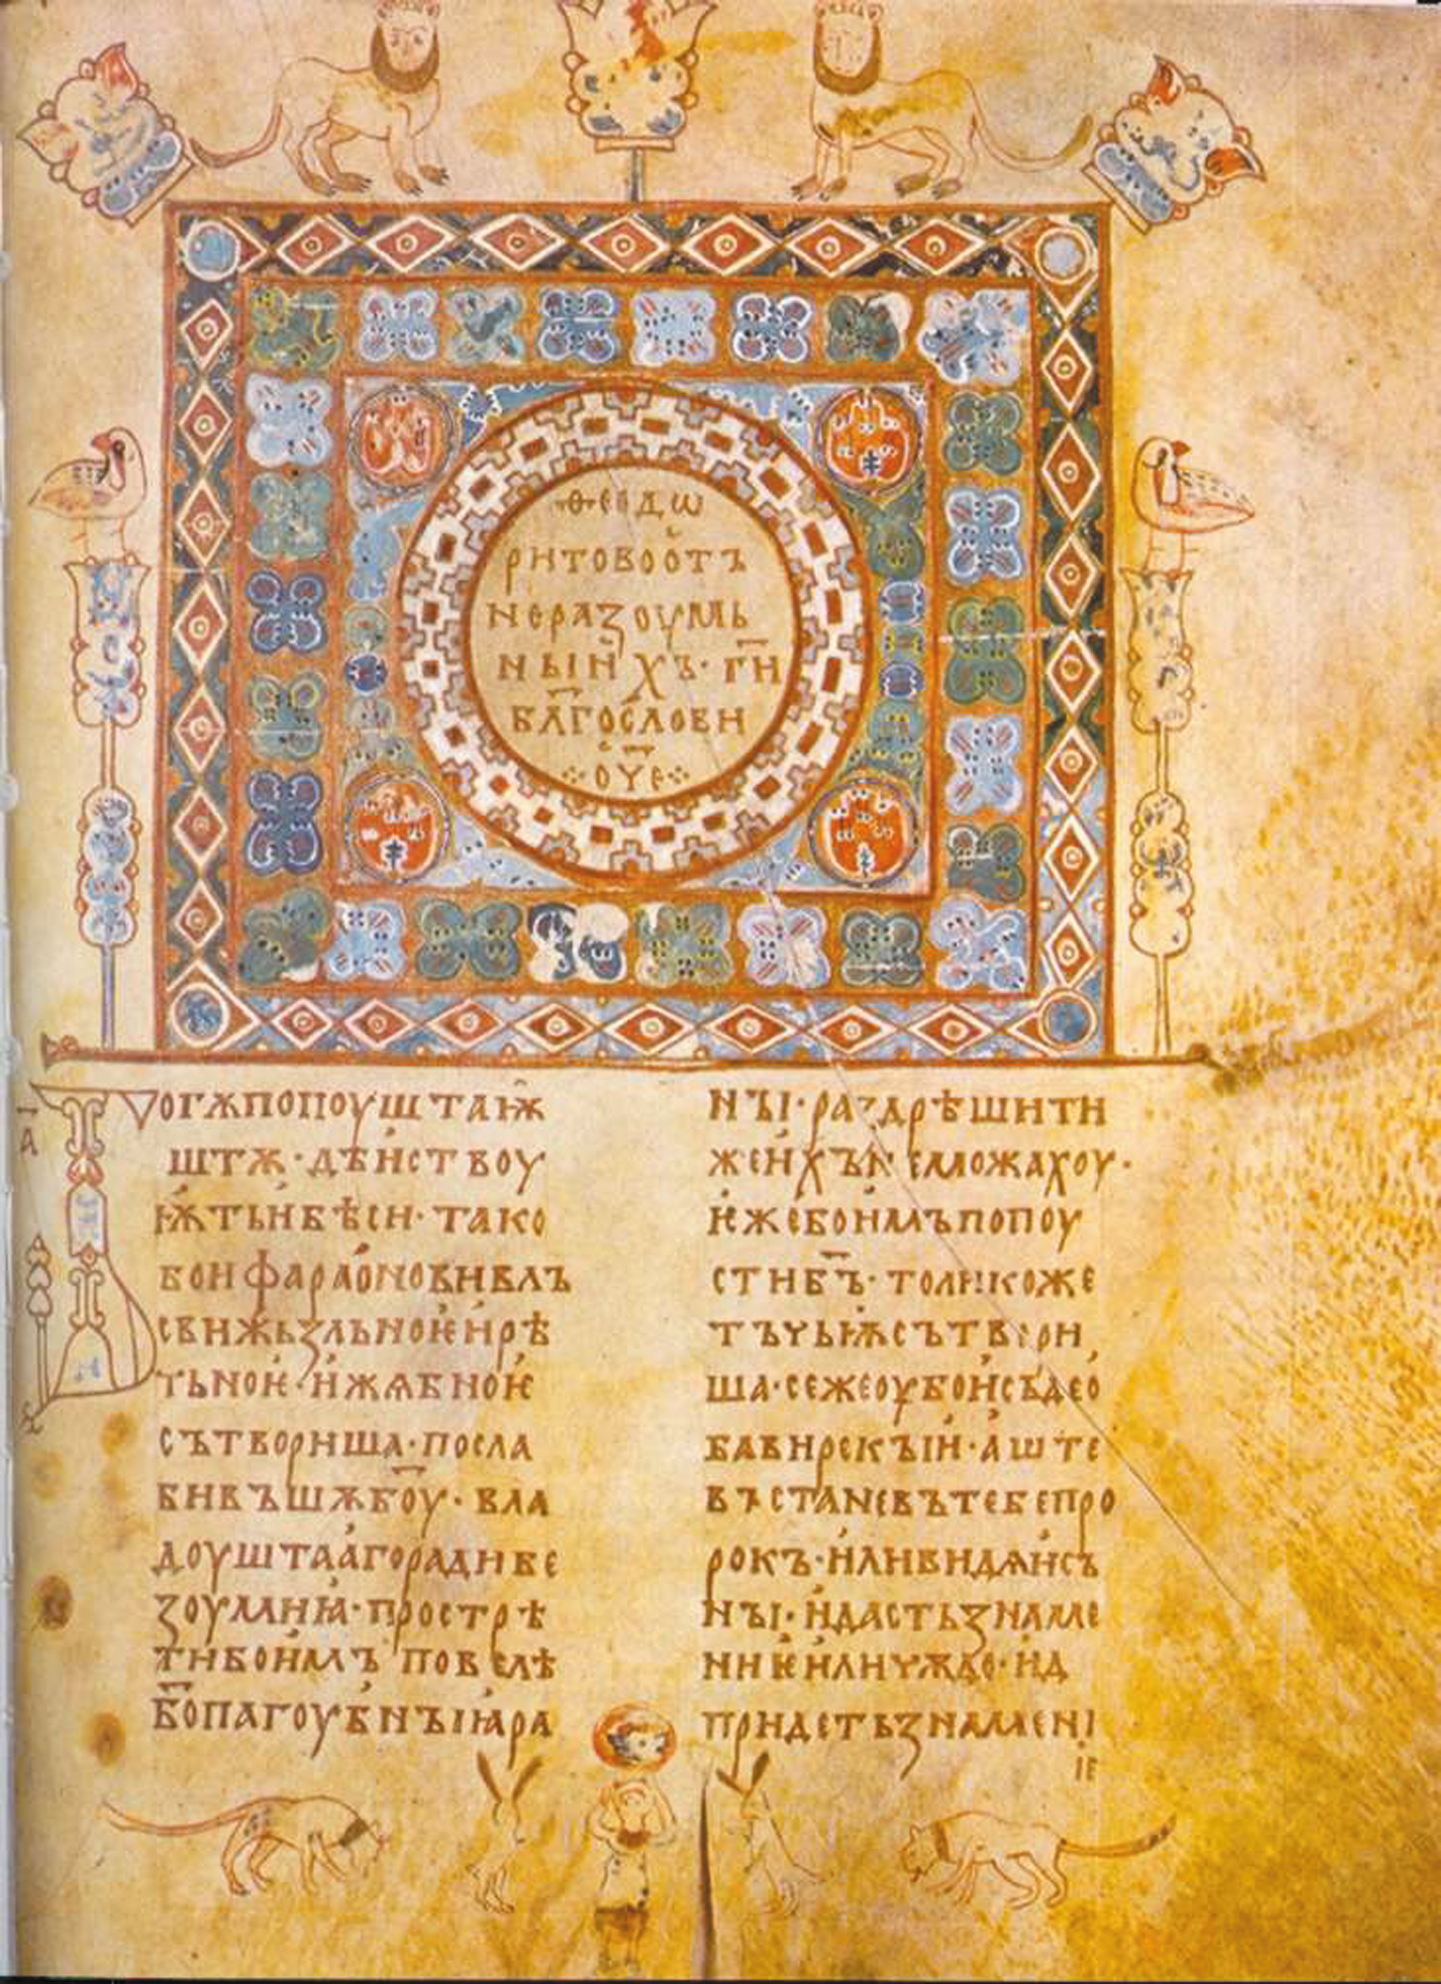 Ѳеодѡ
ритово ѡтъ
неразоумь
ныихъ· г҃и
бл҃гослови
о҃че
а҃
Б҃огѫ попоуштаѭ
штѫ· дѣиствоу
ѭтъ и бѣси· тако
бо и фараонови влъ
сви жьзльное и рѣ
тьное· и жѧбное
сътвориша· посла
бивъшѫ б҃оу· вла
доуштааго ради бе
зоумиꙗ· простр҄ѣ
ти бо имъ повелѣ
б҃ъ пагоубныꙗ ра
ны· раздрѣшити
же ихъ не можахоу·
еже бо имъ попоу
сти б҃ъ· толико же
тъчьѭ сътвори
ша· се же оубо и съде о
бави рекыи· аште
въстане въ тебе про
рокъ· или видѧи съ
ны· и дастъ знаме
ние или чюдо· и
придетъ знамені
іе